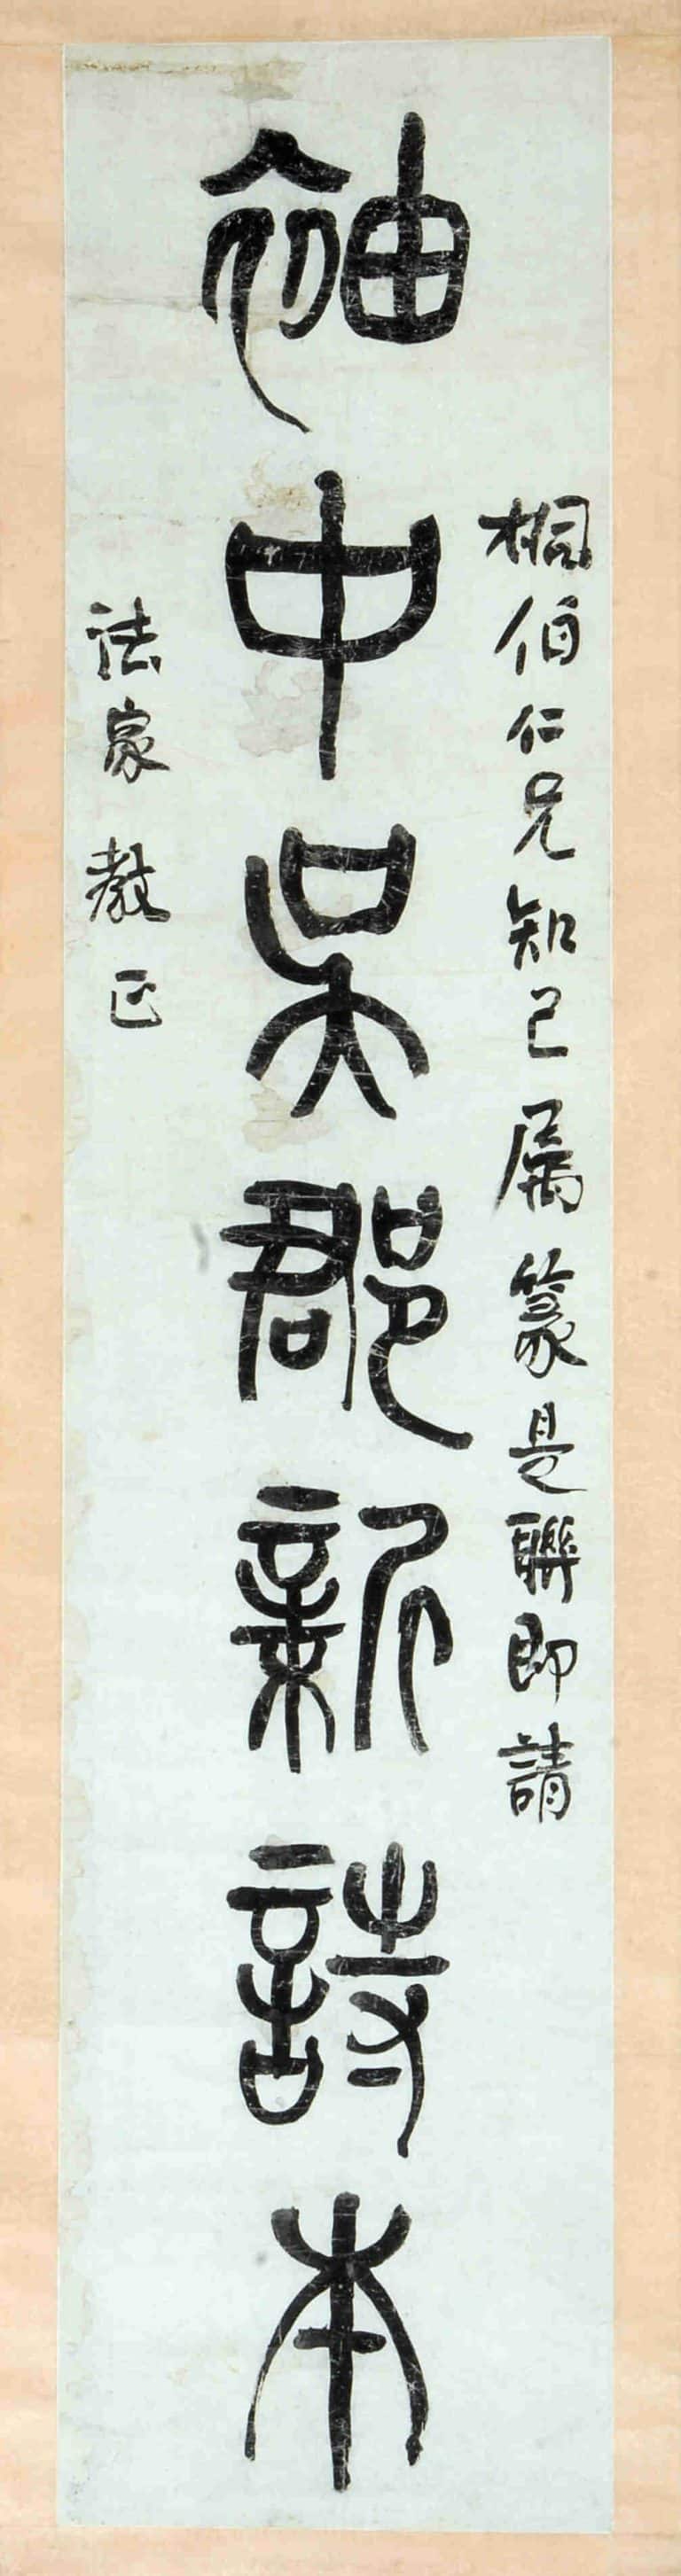 桐伯仁兄知己属篆是聯即請
袖中吴郡新詩本
法家教正